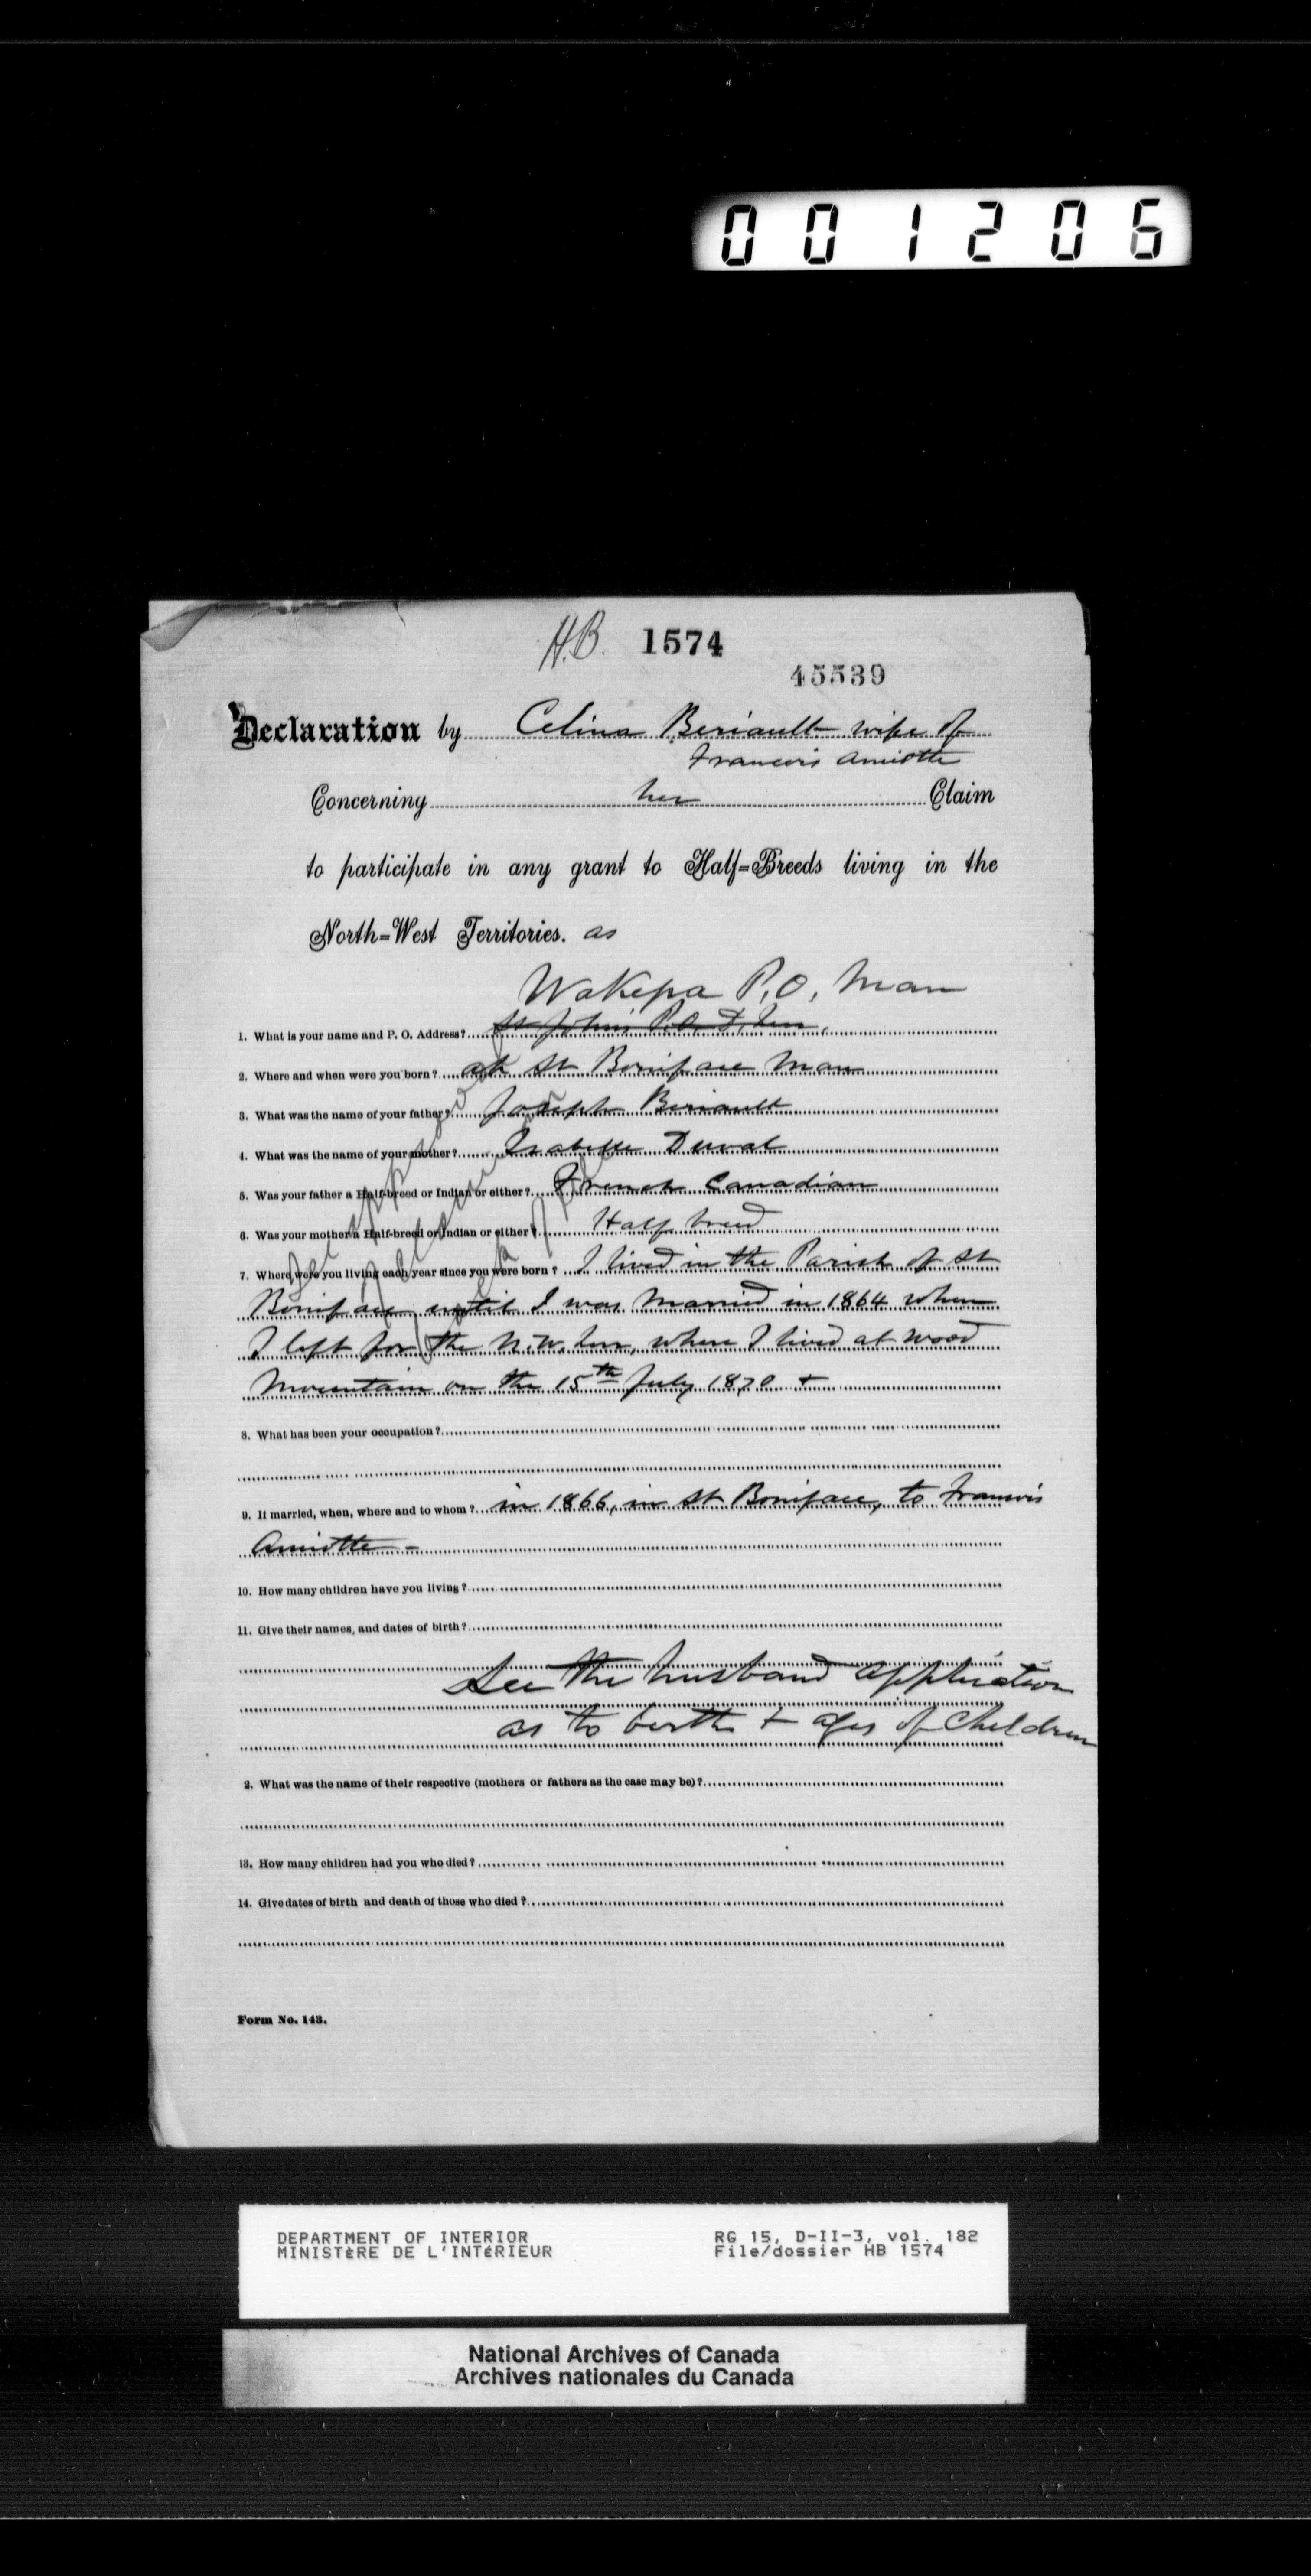 001206
H.B. 1574
45539
Declaration by Celina Beriault wife of
Francois Amiotte
Concerning her Claim
to participate in any grant to Half-Breeds living in the
North-West Territories. as
Wakopa P.O. Man
1. What is your name and P. O. Address? St Johns P.O. D. Terr,
2. Where and when were you born? at St Boniface Man
3. What was the name of your father? Joseph Beriault
4. What was the name of your mother? Isabelle Duval
5. Was your father a Half-breed or Indian or either? French Canadian
6. Was your mother a Half-breed or Indian or either? Half breed
7. Where were you living each year since you were born? I lived in the Parish of St
Boniface until I was married in 1864 when
I left for the N.W. Terr, where I lived at Wood
Mountain on the 15th July 1870 +
8. What has been your occupation?
9. If married, when, where and to whom? in 1866, in St Boniface, to Francois
Amiotte -
10. How many children have you living?
11. Give their names, and dates of birth?
See the husband application
as to birth + ages of Children
2. What was the name of their respective (mothers or fathers as the case may be)?
13. How many children had you who died?
14. Give dates of birth and death of those who died?
Form No. 143.
DEPARTMENT OF INTERIOR RG 15, D-II-3, vol. 182
MINISTÈRE DE L'INTÉRIEUR File/dossier HB 1574
National Archives of Canada
Archives nationales du Canada